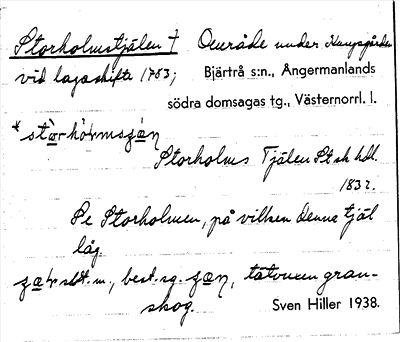 Storholmstjälen † Område under Kungsgården
vid lagaskifte 1783; Bjärtrå s:n., Ångermanlands
södra domsagas tg., Västernorrl. l.
Storholms Tjälen
1832.
Se Storholmen, på vilken denna tjäl
låg.
best. sg. tätvuxen gran-
skog. Sven Hiller 1938.